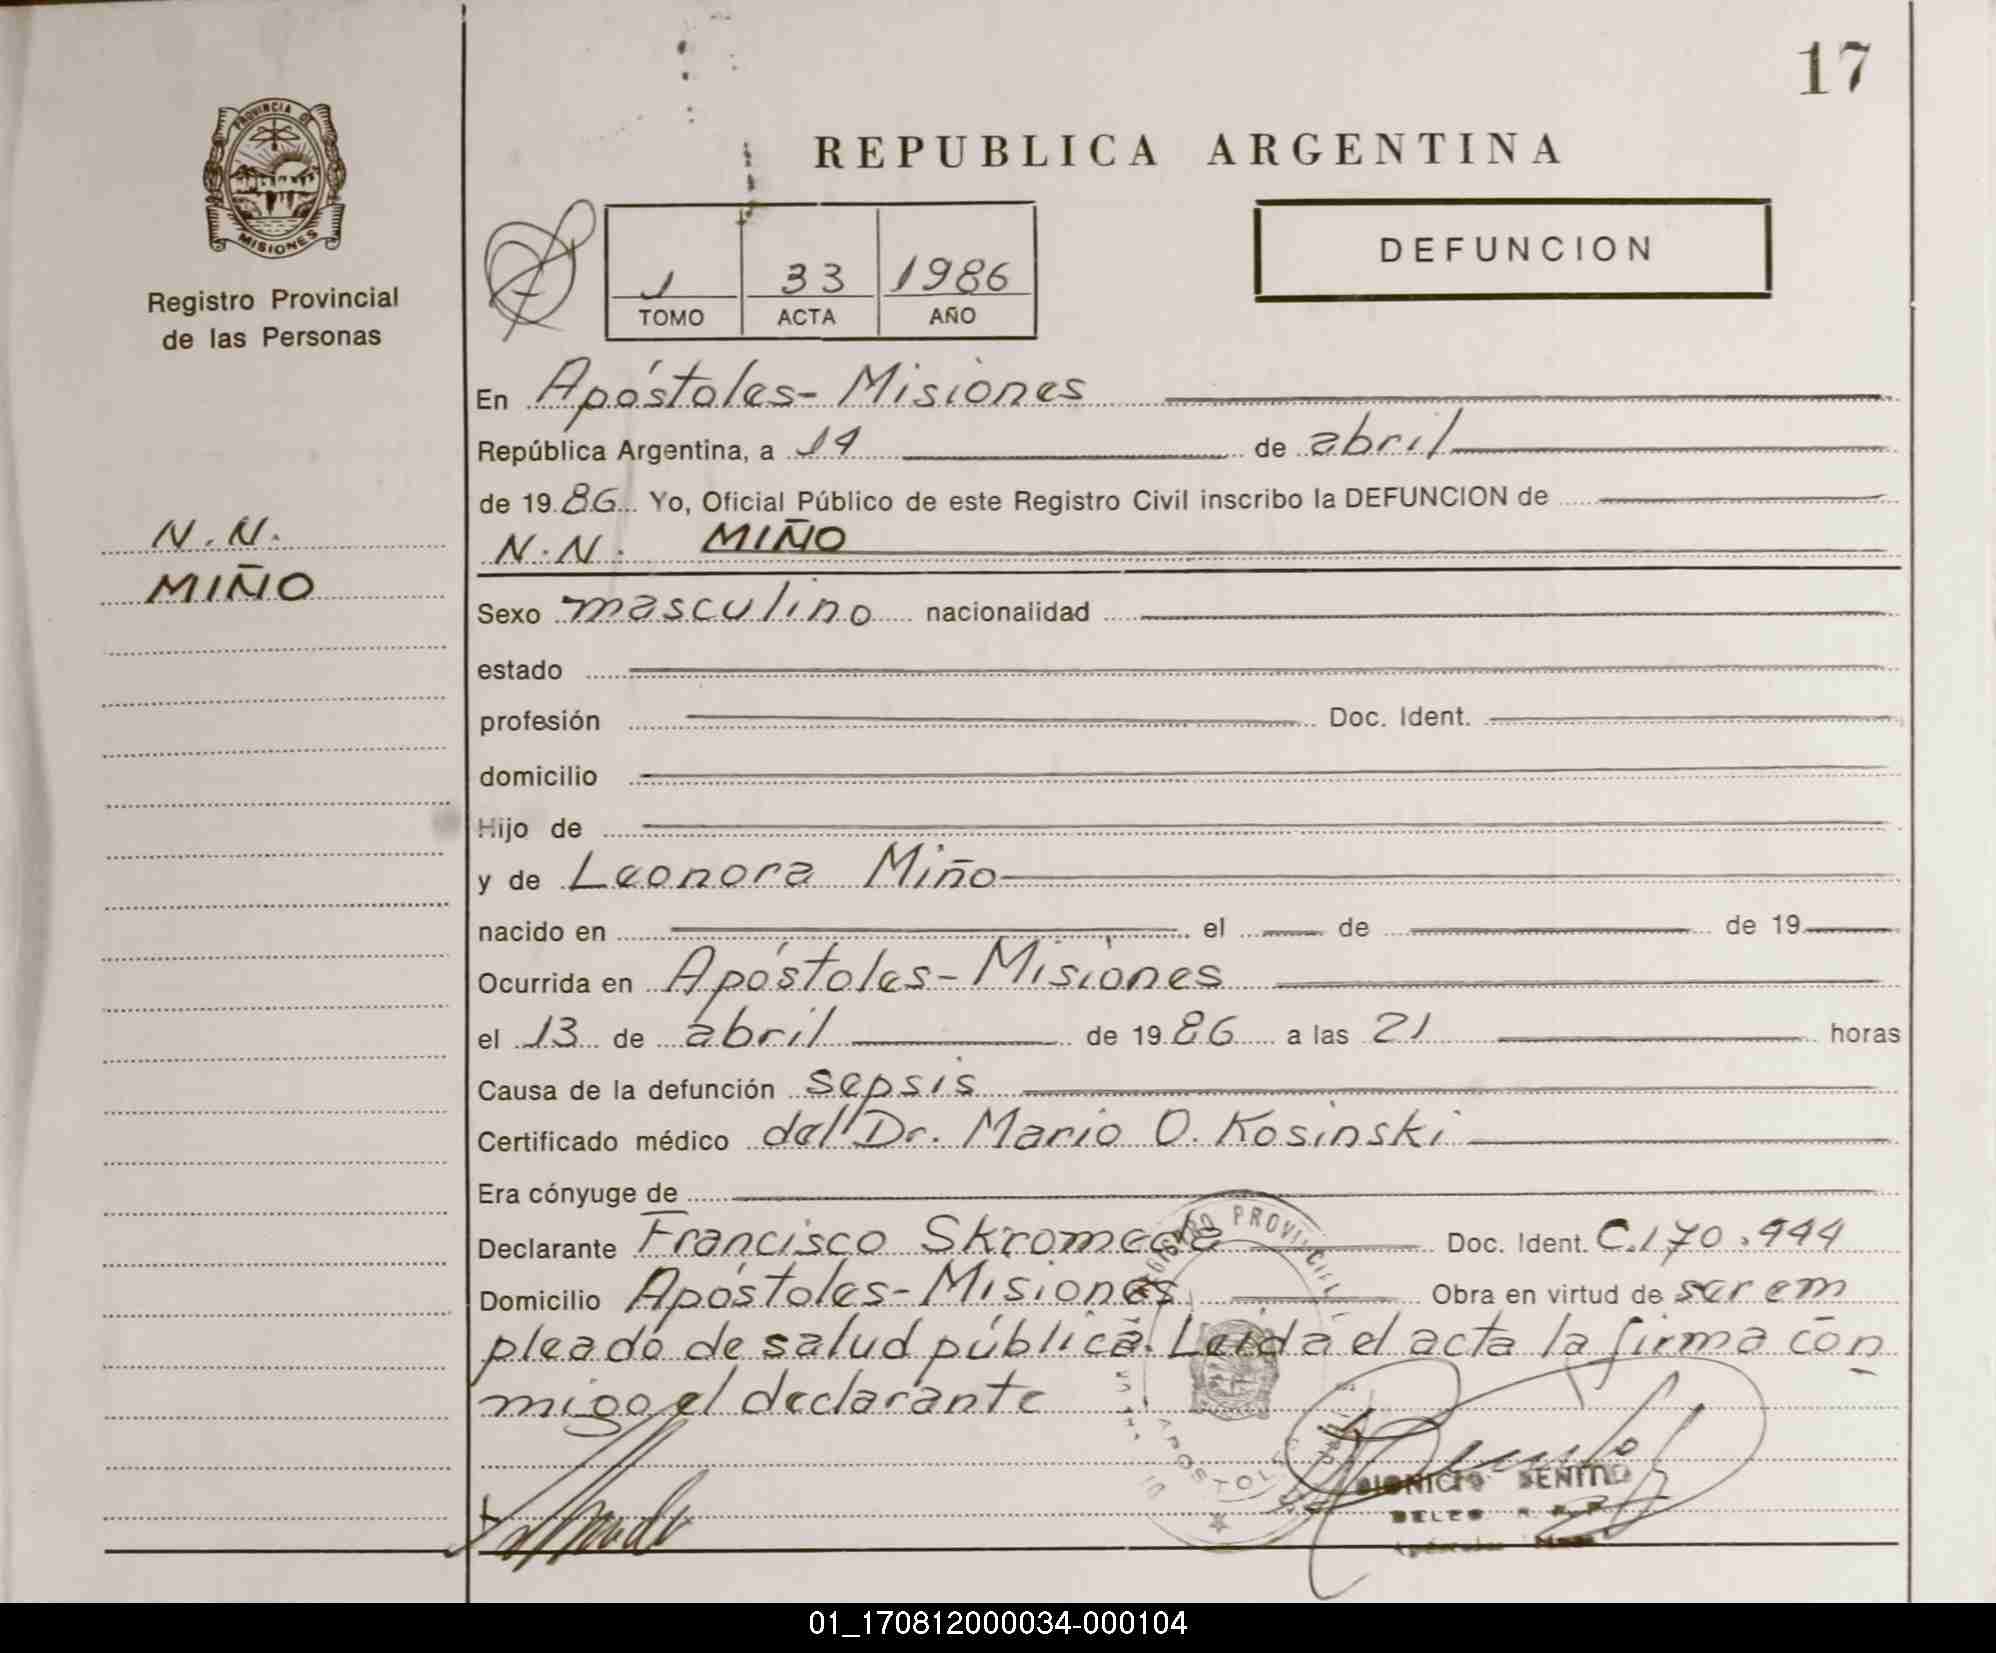 17
PROVINCIA DE
MISIONES
Registro Provincial
de las Personas
REPUBLICA ARGENTINA
DEFUNCION
1 33 1986
TOMO ACTA AÑO
N.N.
MIÑO
En Apóstoles - Misiones
República Argentina, a 14 de abril
de 19 86 Yo, Oficial Público de este Registro Civil inscribo la DEFUNCION de
N.N. MIÑO
Sexo masculino nacionalidad
estado
profesión Doc. Ident.
domicilio
Hijo de
y de Leonora Miño
nacido en el de de 19
Ocurrida en Apóstoles - Misiones
el 13 de abril de 19 86 a las 21 horas
Causa de la defunción sepsis
Certificado médico del Dr. Mario O. Kosinski
Era cónyuge de
Declarante Francisco Doc. Ident. C.170.944
Domicilio Apóstoles - Misiones Obra en virtud de ser em
pleado de salud pública. Leida el acta la firma con
migo el declarante
REGISTRO PROVINCIAL
APOSTOLES
DIONICIO BENITO
01_170812000034-000104